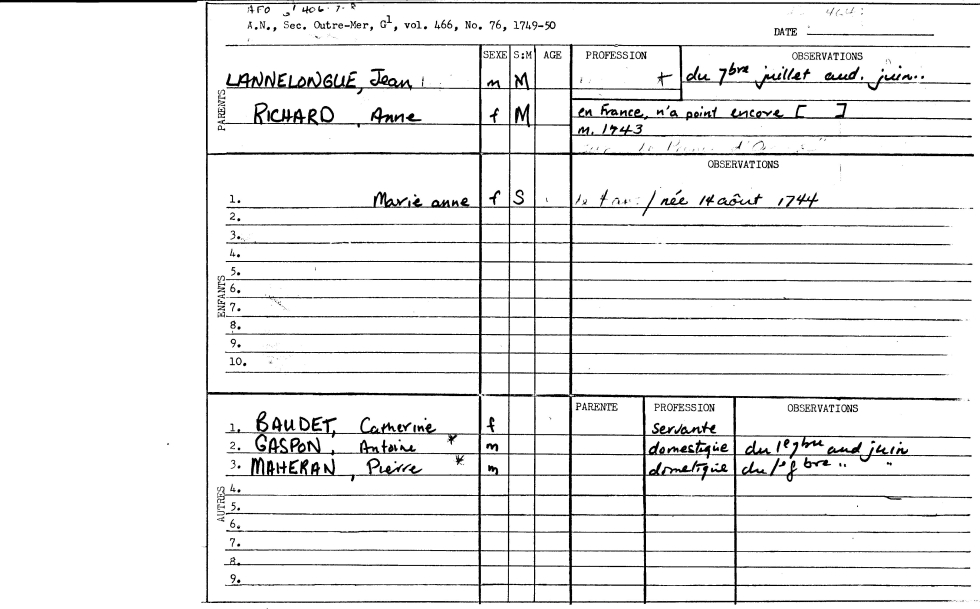 AFO
A.N., Sec. Outre-Mer, G1, vol. 466, No. 76, 1749-50
DATE
SEXE S:M AGE PROFESSION OBSERVATIONS
PARENTS
LANNELONGUE, Jean m M + du 7bre juillet aud. juin..
RICHARD, Anne f M en France, n'a point encore [ ]
m. 1743
OBSERVATIONS
ENFANTS
1. Marie anne f S / née 14 août 1744
2.
3.
4.
5.
6.
7.
8.
9.
10.
PARENTE PROFESSION OBSERVATIONS
AUTRES
1. BAUDET, Catherine f servante
2. GASPON, Antoine * m domestique du 1er 9bre aud juin
3. MAHERAN, Pierre * m dometique du 1er 8bre " "
4.
5.
6.
7.
8.
9.